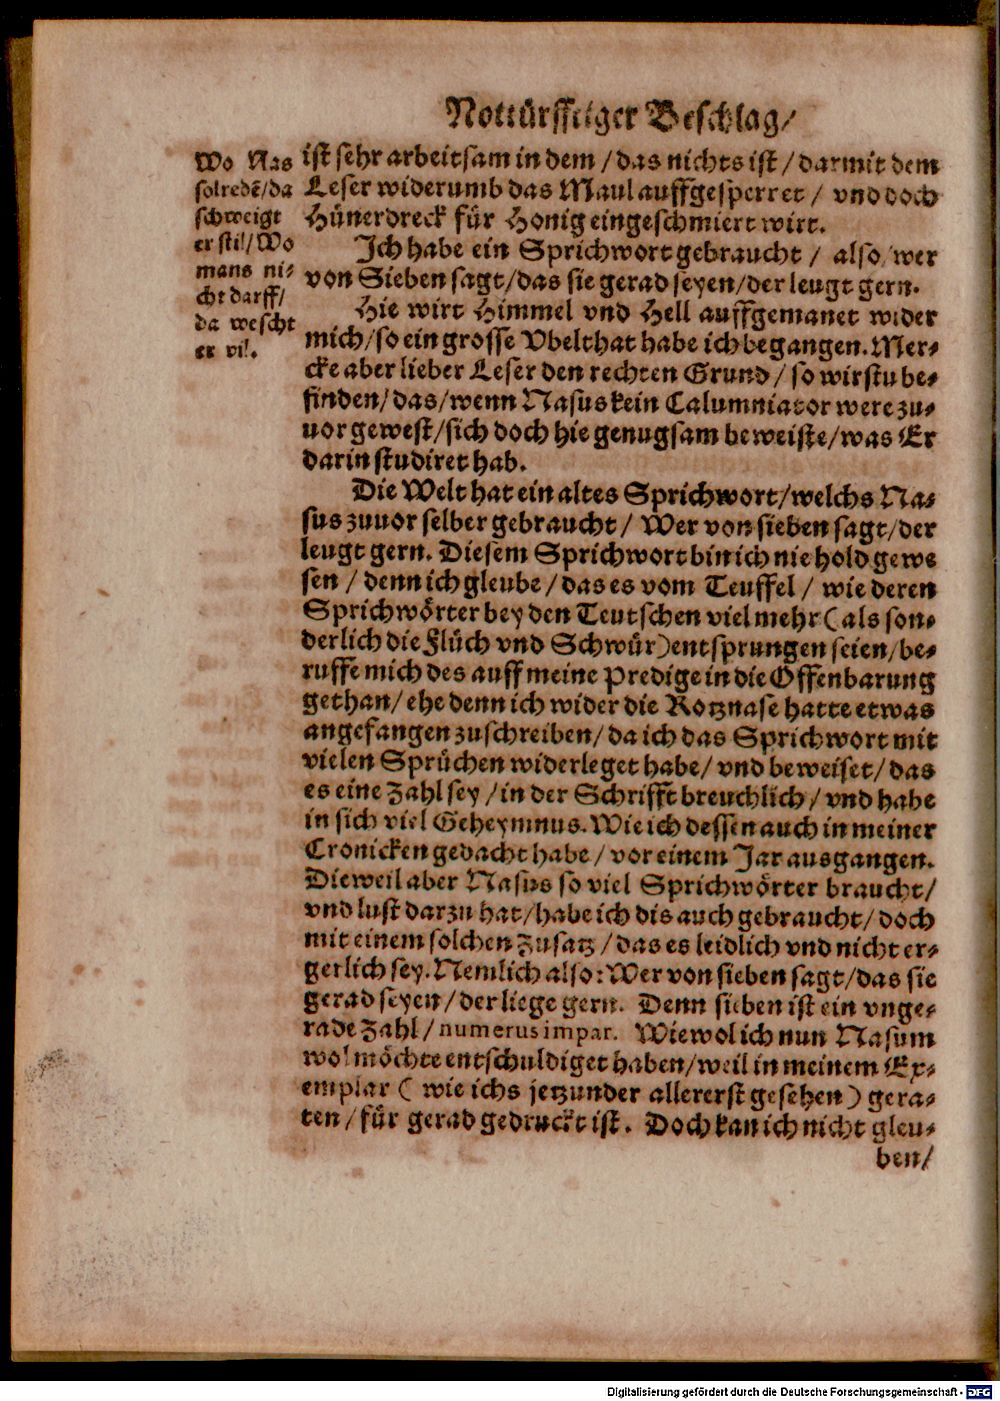 Nottürfftiger Beschlag/
Wo Nas
solredẽ/da
schweigt
er stil/Wo
mans ni-
cht darff/
da wescht
er vil.
ist sehr arbeitsam in dem / das nichts ist / darmit dem
Leser widerumb das Maul auffgesperret / vnd doch
Hünerdreck für Honig eingeschmiert wirt.
Ich habe ein Sprichwort gebraucht / also / wer
von Sieben sagt/das sie gerad seyen/der leugt gern.
Hie wirt Himmel vnd Hell auffgemanet wider
mich/so ein grosse Vbelthat habe ich begangen. Mer-
cke aber lieber Leser den rechten Grund / so wirstu be-
finden/das/wenn Nasus kein Calumniator were zu-
uor gewest/sich doch hie genugsam beweiste/was Er
darin studiret hab.
Die Welt hat ein altes Sprichwort/welchs Na-
sus zuuor selber gebraucht / Wer von sieben sagt/der
leugt gern. Diesem Sprichwort bin ich nie hold gewe
sen / denn ich gleube / das es vom Teuffel / wie deren
Sprichwörter bey den Teutschen viel mehr ( als son-
derlich die Flüch vnd Schwür ) entsprungen seien/be-
ruffe mich des auff meine Predige in die Offenbarung
gethan/ ehe denn ich wider die Rotznase hatte etwas
angefangen zu schreiben/ da ich das Sprichwort mit
vielen Sprüchen widerleget habe/ vnd beweiset/ das
es eine Zahl sey / in der Schrifft breuchlich / vnd habe
in sich viel Geheymnus. Wie ich dessen auch in meiner
Cronicken gedacht habe / vor einem Jar ausgangen.
Dieweil aber Nasus so viel Sprichwörter braucht/
vnd lust darzu hat/habe ich dis auch gebraucht/ doch
mit einem solchen Zusatz / das es leidlich vnd nicht er-
gerlich sey. Nemlich also: Wer von sieben sagt/das sie
gerad seyen / der liege gern. Denn sieben ist ein vnge-
rade Zahl / numerus impar. Wiewol ich nun Nasum
wol möchte entschuldiget haben/weil in meinem Ex-
emplar ( wie ichs jetzunder allererst gesehen ) gera-
ten / für gerad gedruckt ist. Doch kan ich nicht gleu-
ben/
Digitalisierung gefördert durch die Deutsche Forschungsgemeinschaft - DFG